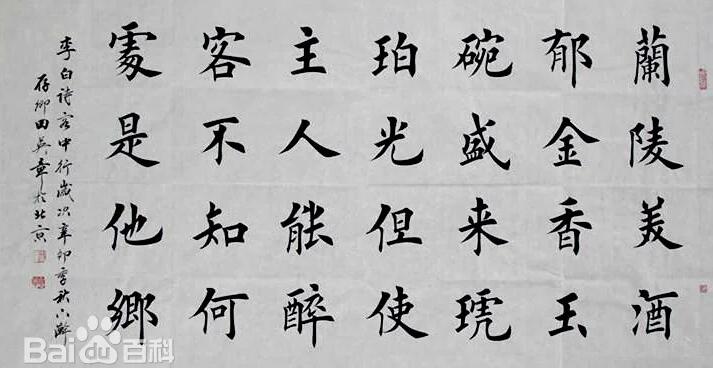 蘭陵美酒
郁金香玉
碗盛来琥
珀光但使
主人能醉
客不知何
處是他鄉
李白诗客中行歲次辛卯季秋小
存卿田英章於北京
Bai百科